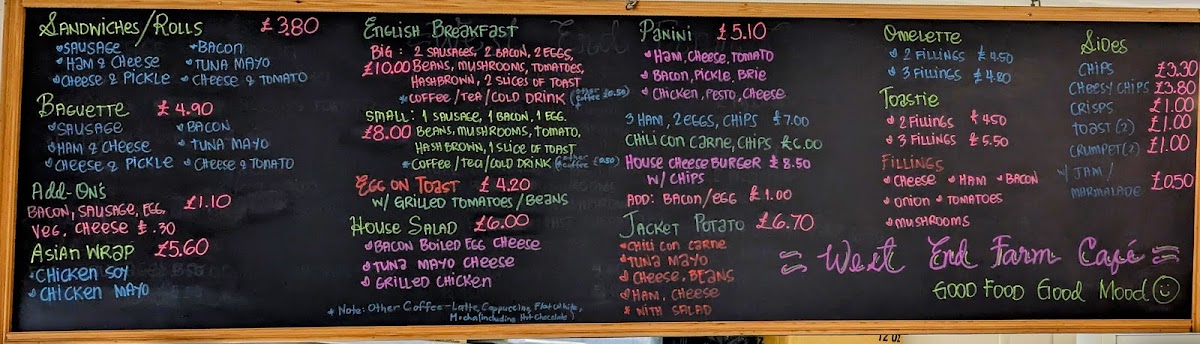 Sandwiches/Rolls £3.80
Sausage Bacon
Ham & Cheese Tuna Mayo
Cheese & Pickle Cheese & Tomato
Baguette £4.90
Sausage Bacon
Ham & Cheese Tuna Mayo
Cheese & Pickle Cheese & Tomato
Add-On's
Bacon, Sausage, Egg, £1.10
Veg, Cheese £.30
Asian Wrap £5.60
Chicken Soy
Chicken Mayo
English Breakfast
Big: 2 Sausages, 2 Bacon, 2 Eggs,
£10.00 Beans, Mushrooms, Tomatoes,
Hashbrown, 2 Slices of Toast
*Coffee/Tea/Cold Drink (other coffee £0.50)
Small: 1 Sausage, 1 Bacon, 1 Egg.
£8.00 Beans, Mushrooms, Tomato,
Hash Brown, 1 Slice of Toast
*Coffee/Tea/Cold Drink (other coffee £0.50)
Egg on Toast £4.20
w/ Grilled Tomatoes/Beans
House Salad £6.00
Bacon Boiled Egg Cheese
Tuna Mayo Cheese
Grilled Chicken
*Note: Other Coffee - Latte, Cappuccino, Flat White,
Mocha (including Hot Chocolate)
Panini £5.10
Ham, Cheese, Tomato
Bacon, Pickle, Brie
Chicken, Pesto, Cheese
3 Ham, 2 Eggs, Chips £7.00
Chili Con Carne, Chips £6.00
House Cheese Burger £8.50
w/ Chips
Add: Bacon/Egg £1.00
Jacket Potato £6.70
Chili Con Carne
Tuna Mayo
Cheese, Beans
Ham, Cheese
* With Salad
Omelette
2 Fillings £4.50
3 Fillings £4.80
Toastie
2 Fillings £4.50
3 Fillings £5.50
Fillings
Cheese Ham Bacon
Onion Tomatoes
Mushrooms
Sides
Chips £3.30
Cheesy Chips £3.80
Crisps £1.00
Toast (2) £1.00
Crumpet (2) £1.00
w/ Jam/
Marmalade £0.50
West End Farm Café
Good Food Good Mood
12 oz